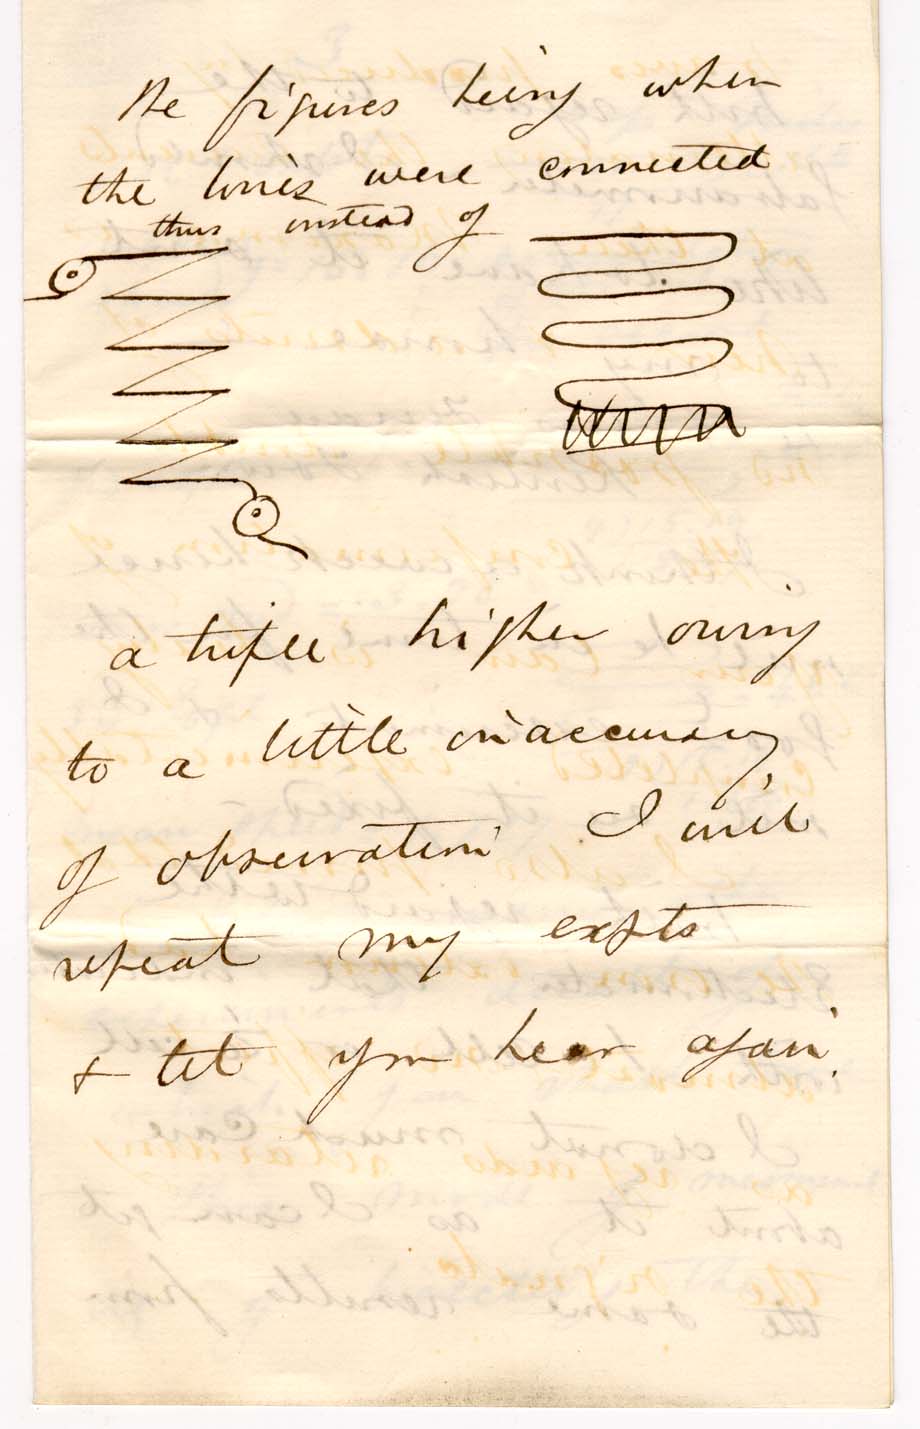 the figures being when
the lines were connected
thus instead of
a trifle higher owing
to a little inaccuracy
of observation I will
repeat my expts
& let you hear again.